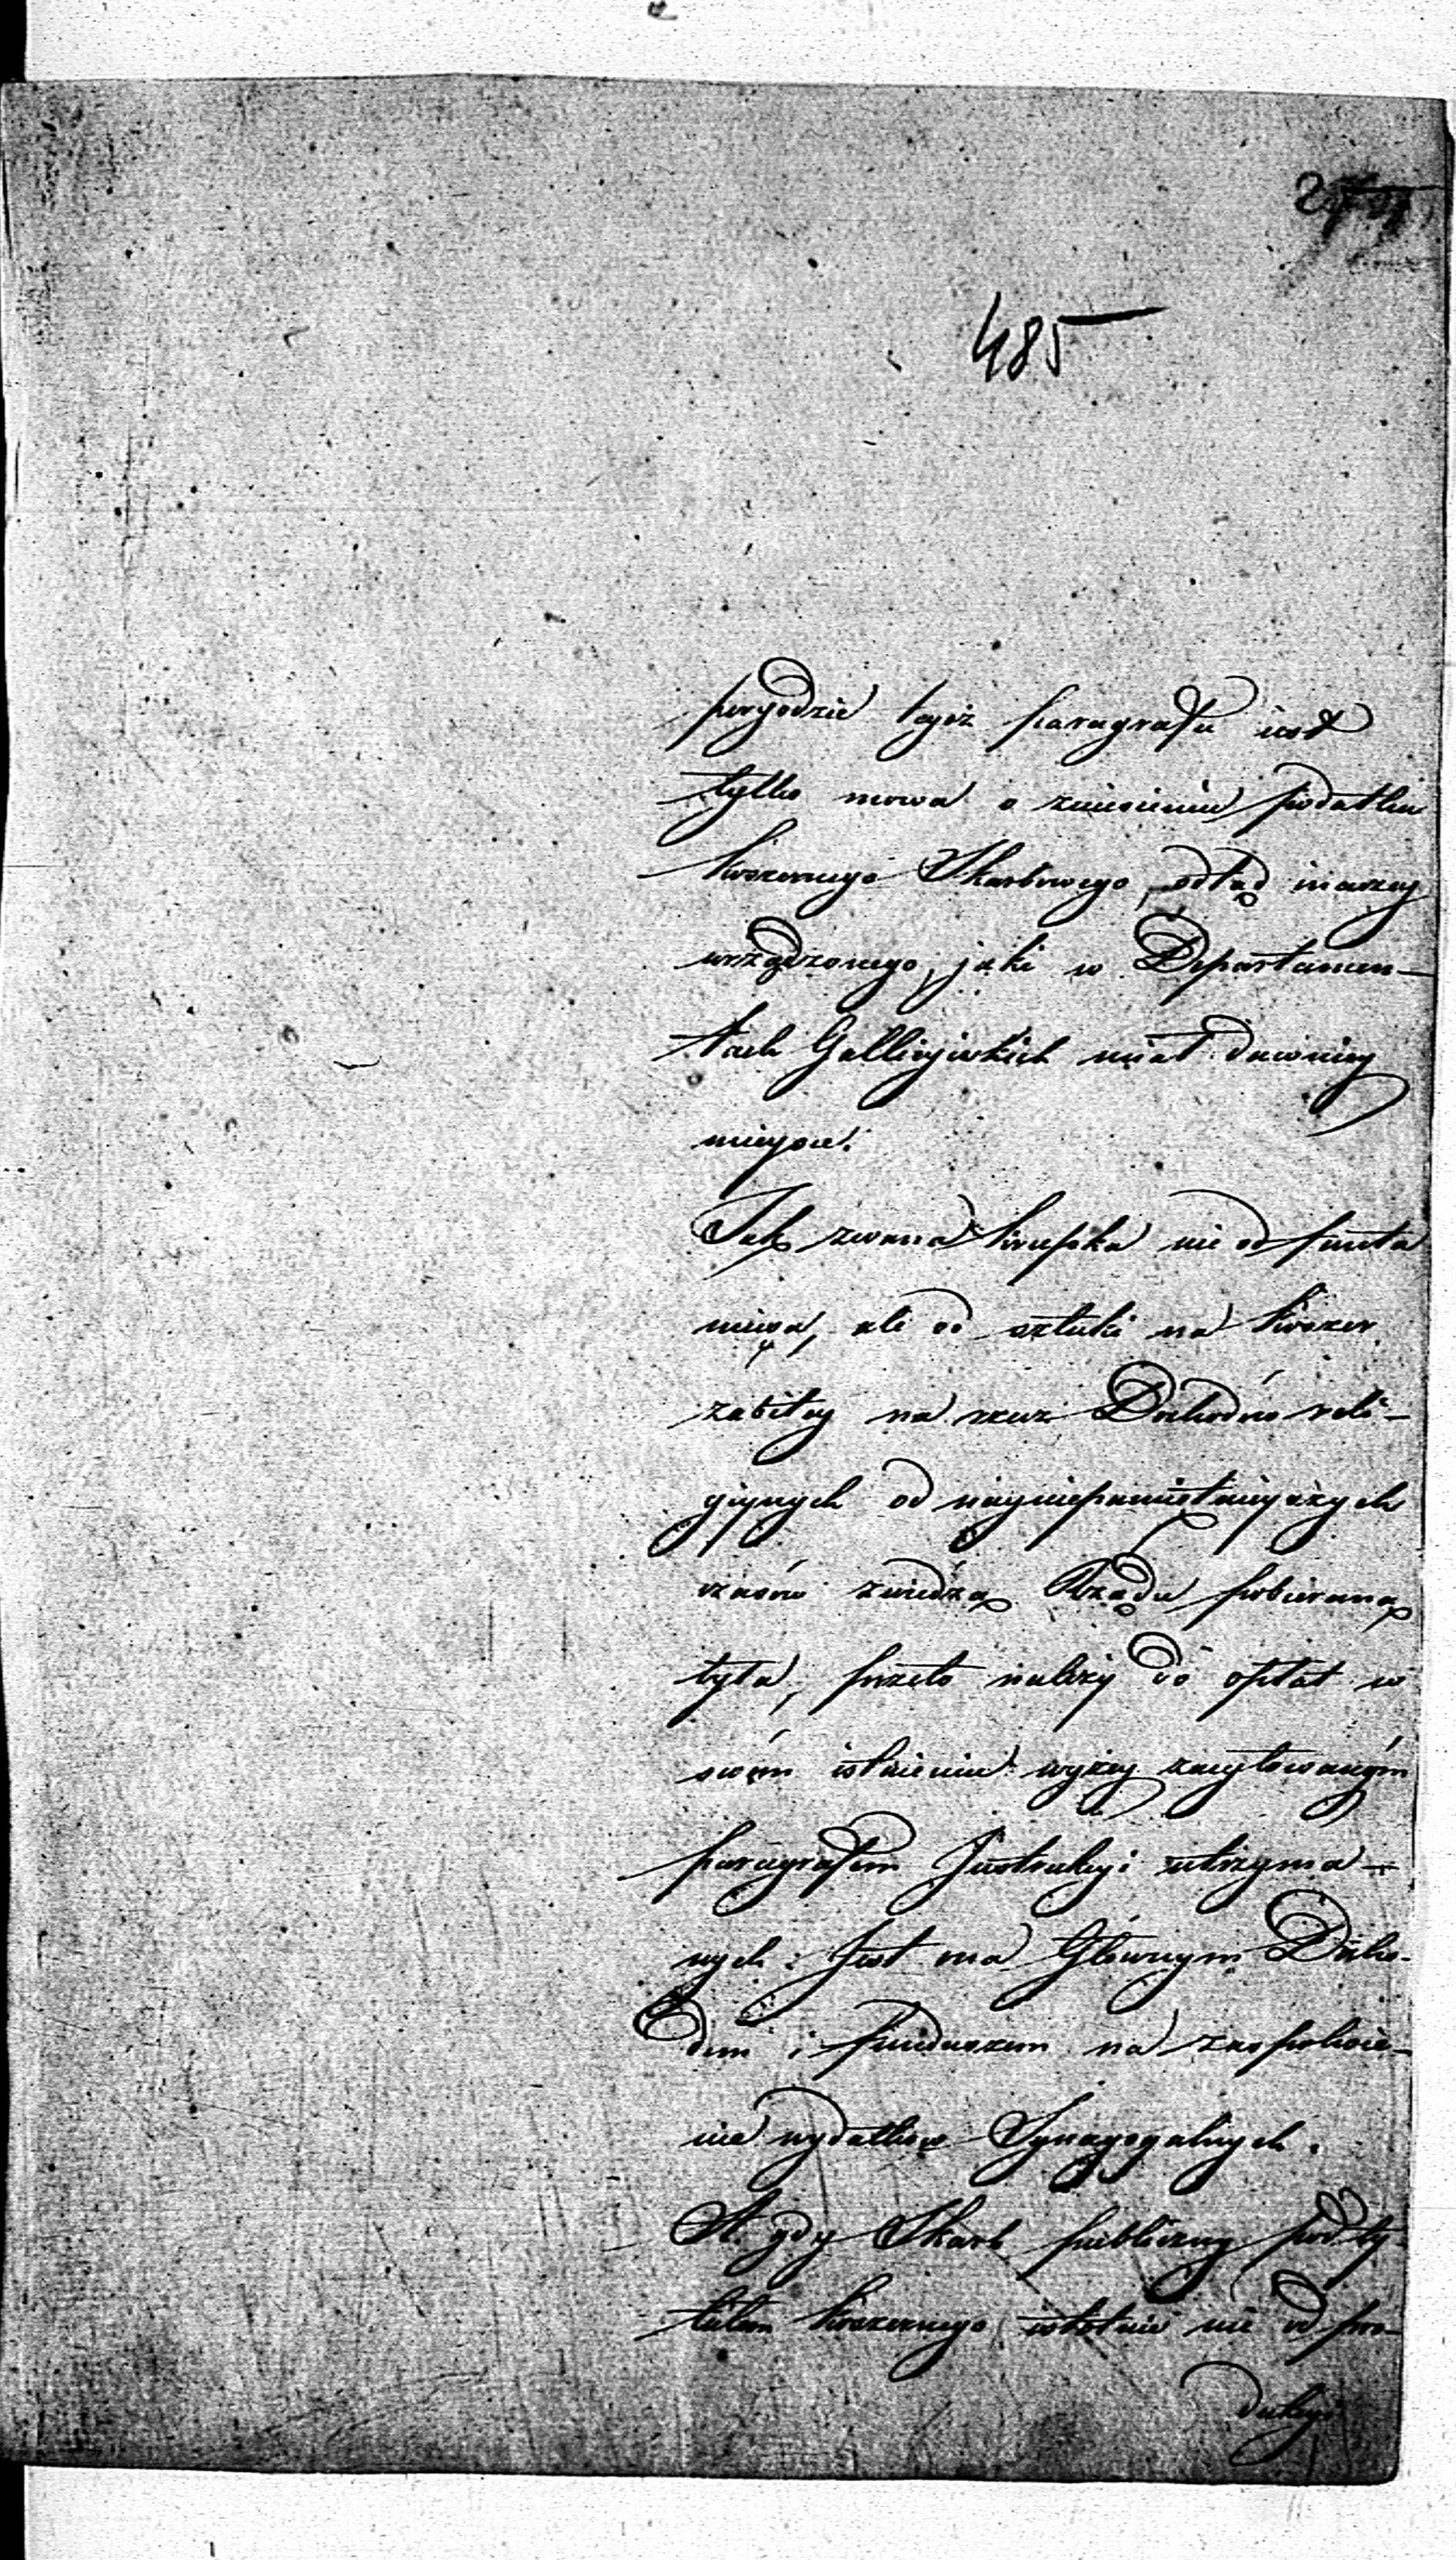 485
peryodzie tegoż paragrafu iest
tylko mowa o zniesieniu podatku
koszernego Skarbowego, odtąd inaczey
urządzonego, jaki w Departamen-
tach Gallicyiskich miał dawniey
mieysce.
Tak zwana krupka nie od funta
mięsa, ale od sztuki na koszer
zabitey na rzecz Dochodów reli-
giynych od nayniepamiętnieyszych
czasów z wiedzą Rządu pobieraną
była, przeto należy do opłat w
swém istnieniu wyżey zacytowaném
paragrafem Instrukcyi utrzyma-
nych: Jest ona Głównym Docho-
dem i funduszem na zaspokoie-
nie wydatków Synagogalnych.
A gdy Skarb publiczny pod ty-
tułem koszernego istotnie nie od pro-
dukcyi